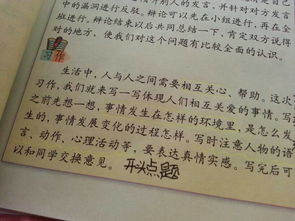 中的漏洞进行反驳。辩论可以先在小组进行,再在全
班进行。辩论结束以后共同总结一下,肯定双方说得
对的地方,使我们对这个问题有比较全面的认识。
习作
生活中,人与人之间需要相互关心、帮助。这次
习作,我们就来写一写体现人们相互关爱的事情。写
之前先想一想,事情发生在怎样的环境里,是怎么发
生的,事情发展变化的过程怎样。写时注意人物的语
言、动作、心理活动等,要表达真情实感。写完后可
以和同学交换意见。 开头点题